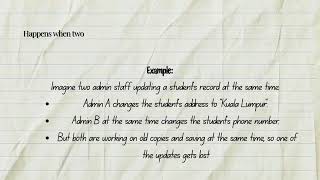 Happens when two
Example:
Imagine two admin staff updating a student's record at the same time.
Admin A changes the student's address to "Kuala Lumpur".
Admin B at the same time changes the student's phone number.
But both are working on old copies and saving at the same time, so one of
the updates gets lost